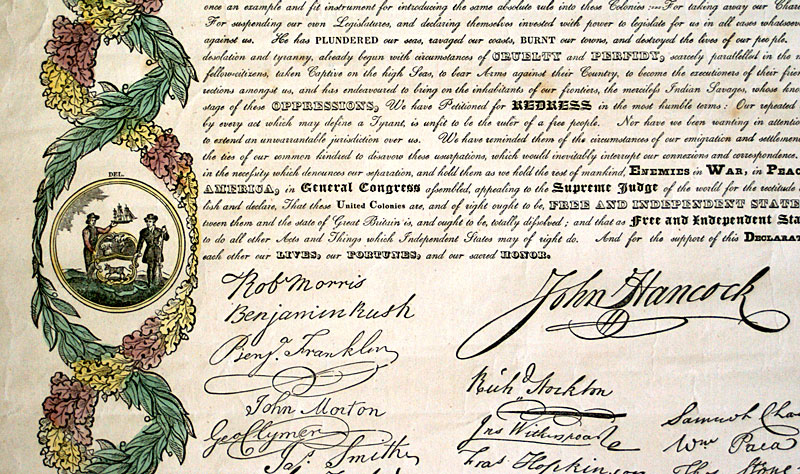 once an example and fit instrument for introducing the same absolute rule into these Colonies :— For taking away our Char
For suspending our own Legislatures, and declaring themselves invested with power to legislate for us in all cases whatsoev
against us. He has PLUNDERED our seas, ravaged our coasts, BURNT our towns, and destroyed the lives of our people.
desolation and tyranny, already begun with circumstances of CRUELTY and PERFIDY, scarcely parallelled in the m
fellow-citizens, taken Captive on the high Seas, to bear Arms against their Country, to become the executioners of their frien
rections amongst us, and has endeavoured to bring on the inhabitants of our frontiers, the merciless Indian Savages, whose know
stage of these OPPRESSIONS, We have Petitioned for REDRESS in the most humble terms : Our repeated
by every act which may define a Tyrant, is unfit to be the ruler of a free people. Nor have we been wanting in attentio
to extend an unwarrantable jurisdiction over us. We have reminded them of the circumstances of our emigration and settlemen
the ties of our common kindred to disavow these usurpations, which would inevitably interrupt our connexions and correspondence.
in the necessity which denounces our separation, and hold them as we hold the rest of mankind, ENEMIES in WAR, in PEAC
AMERICA, in General Congress assembled, appealing to the Supreme Judge of the world for the rectitude o
lish and declare, That these United Colonies are, and of right ought to be, FREE AND INDEPENDENT STATE
tween them and the state of Great Britain is, and ought to be, totally dissolved ; and that as Free and Independent Sta
to do all other Acts and Things which Independent States may of right do. And for the support of this DECLARAT
each other our LIVES, our FORTUNES, and our sacred HONOR.
DEL.
Robt Morris
Benjamin Rush
Benja. Franklin
John Morton
Geo Clymer
Jas. Smith
John Hancock
Richd Stockton
Jno Witherspoon
Fras Hopkinson
Samuel Cha
Wm Paca
Thos Stone